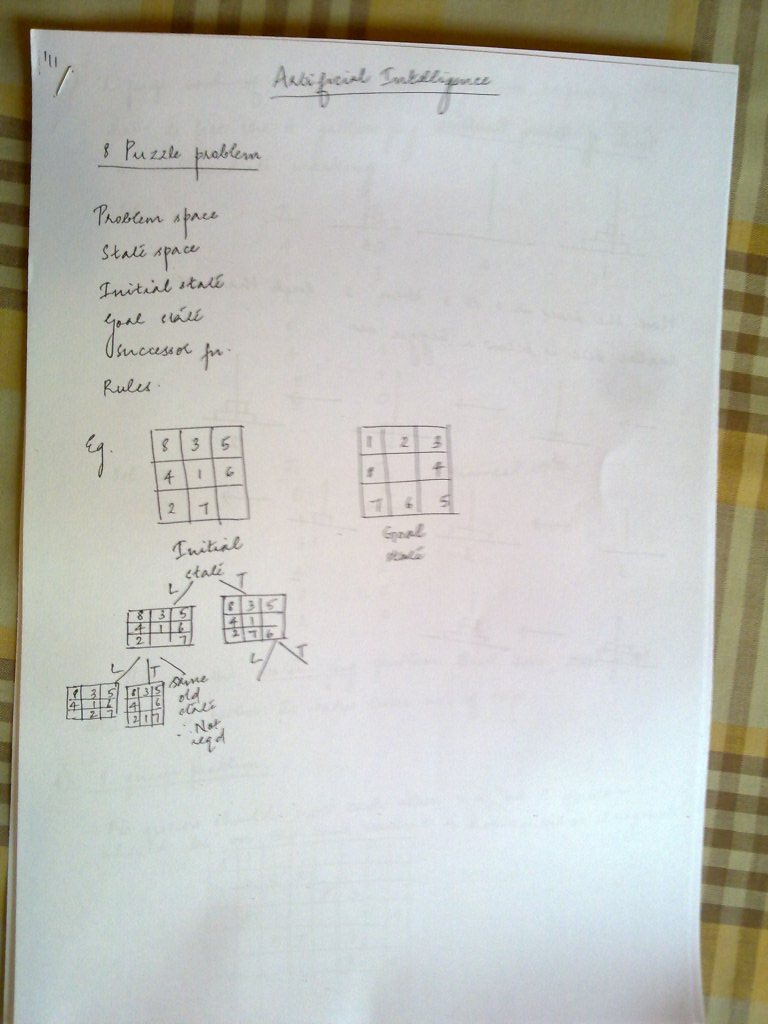 Artificial Intelligence
8 Puzzle problem
Problem space
State space
Initial state
Goal state
Successor fn.
Rules.
Eg.
8 3 5
4 1 6
2 7
Initial
state
1 2 3
8 4
7 6 5
Goal
state
L T
8 3 5
4 1 6
2 7
8 3 5
4 1
2 7 6
L T
L T
8 3 5
4 1 6
2 7
8 3 5
4 6
2 1 7
same
old
state
∴ Not
reqd